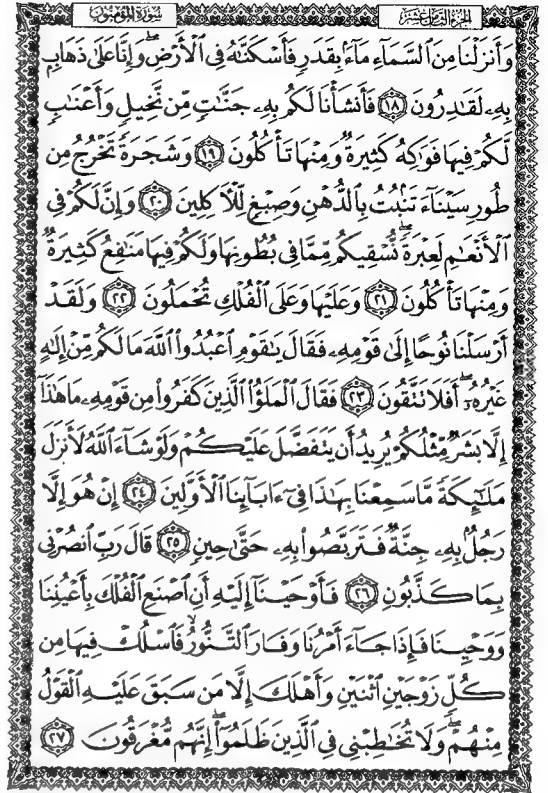 الجزء الثامن عشر
سورة المؤمنون
وَأَنزَلْنَا مِنَ ٱلسَّمَآءِ مَآءًۢ بِقَدَرٍ فَأَسْكَنَّٰهُ فِى ٱلْأَرْضِ ۖ وَإِنَّا عَلَىٰ ذَهَابٍۭ
بِهِۦ لَقَٰدِرُونَ ١٨ فَأَنشَأْنَا لَكُم بِهِۦ جَنَّٰتٍ مِّن نَّخِيلٍ وَأَعْنَٰبٍ
لَّكُمْ فِيهَا فَوَٰكِهُ كَثِيرَةٌ وَمِنْهَا تَأْكُلُونَ ١٩ وَشَجَرَةً تَخْرُجُ مِن
طُورِ سَيْنَآءَ تَنۢبُتُ بِٱلدُّهْنِ وَصِبْغٍ لِّلْءَاكِلِينَ ٢٠ وَإِنَّ لَكُمْ فِى
ٱلْأَنْعَٰمِ لَعِبْرَةً ۖ نُّسْقِيكُم مِّمَّا فِى بُطُونِهَا وَلَكُمْ فِيهَا مَنَٰفِعُ كَثِيرَةٌ
وَمِنْهَا تَأْكُلُونَ ٢١ وَعَلَيْهَا وَعَلَى ٱلْفُلْكِ تُحْمَلُونَ ٢٢ وَلَقَدْ
أَرْسَلْنَا نُوحًا إِلَىٰ قَوْمِهِۦ فَقَالَ يَٰقَوْمِ ٱعْبُدُوا۟ ٱللَّهَ مَا لَكُم مِّنْ إِلَٰهٍ
غَيْرُهُۥٓ ۖ أَفَلَا تَتَّقُونَ ٢٣ فَقَالَ ٱلْمَلَؤُا۟ ٱلَّذِينَ كَفَرُوا۟ مِن قَوْمِهِۦ مَا هَٰذَآ
إِلَّا بَشَرٌ مِّثْلُكُمْ يُرِيدُ أَن يَتَفَضَّلَ عَلَيْكُمْ وَلَوْ شَآءَ ٱللَّهُ لَأَنزَلَ
مَلَٰٓئِكَةً مَّا سَمِعْنَا بِهَٰذَا فِىٓ ءَابَآئِنَا ٱلْأَوَّلِينَ ٢٤ إِنْ هُوَ إِلَّا
رَجُلٌۢ بِهِۦ جِنَّةٌ فَتَرَبَّصُوا۟ بِهِۦ حَتَّىٰ حِينٍ ٢٥ قَالَ رَبِّ ٱنصُرْنِى
بِمَا كَذَّبُونِ ٢٦ فَأَوْحَيْنَآ إِلَيْهِ أَنِ ٱصْنَعِ ٱلْفُلْكَ بِأَعْيُنِنَا
وَوَحْيِنَا فَإِذَا جَآءَ أَمْرُنَا وَفَارَ ٱلتَّنُّورُ ۙ فَٱسْلُكْ فِيهَا مِن
كُلٍّ زَوْجَيْنِ ٱثْنَيْنِ وَأَهْلَكَ إِلَّا مَن سَبَقَ عَلَيْهِ ٱلْقَوْلُ
مِنْهُمْ ۖ وَلَا تُخَٰطِبْنِى فِى ٱلَّذِينَ ظَلَمُوٓا۟ ۖ إِنَّهُم مُّغْرَقُونَ ٢٧